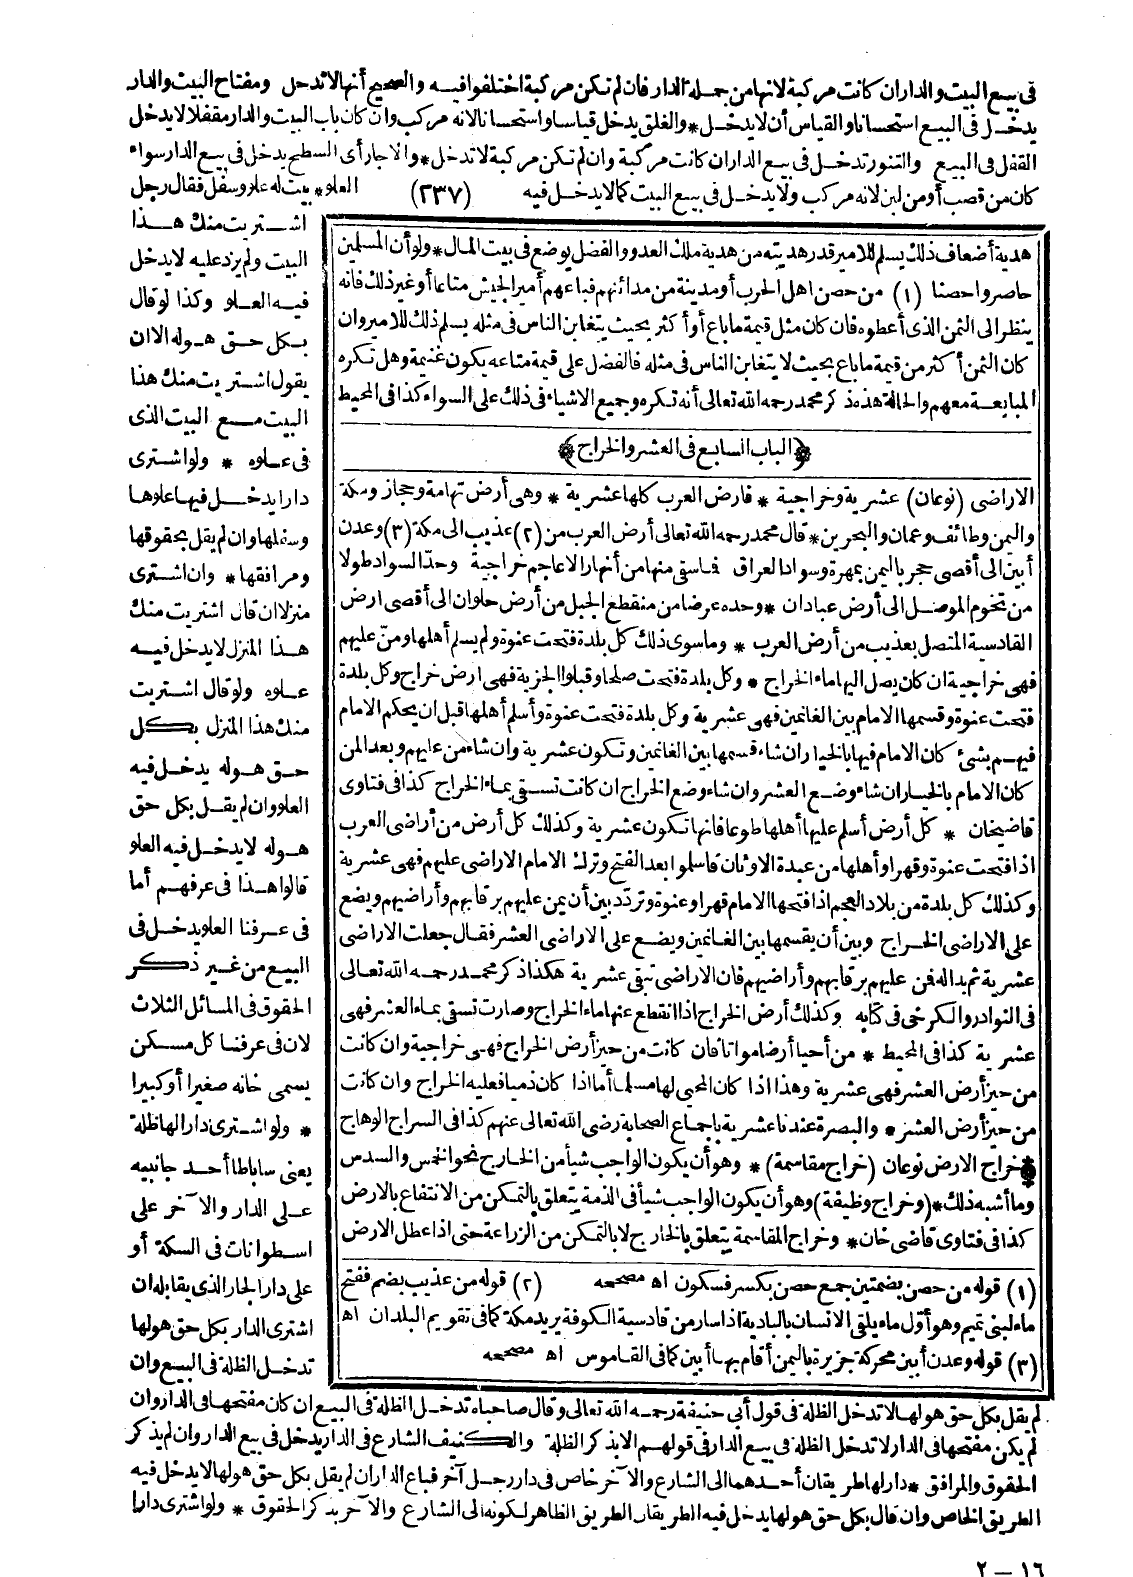 فى بيع البيت والدار ان كانت مركبة لانها من جملة الدار فان لم تكن مركبة اختلفوا فيه والصحيح أنها لا تدخل ومفتاح البيت والدار
يدخل فى البيع استحسانا والقياس أن لا يدخل * والغلق يدخل قياسا واستحسانا لانه مركب وان كان باب البيت والدار مقفلا لا يدخل
القفل فى البيع والتنور تدخل فى بيع الدار ان كانت مركبة وان لم تكن مركبة لا تدخل * والاجار أى السطح يدخل فى بيع الدار سواء
كان من قصب أو من لبن لانه مركب ولا يدخل فى بيع البيت كما لا يدخل فيه (٢٣٧) العلو * بيت له علو وسفل فقال رجل
اشتريت منك هذا
البيت ولم يزد عليه لا يدخل
فيه العلو وكذا لو قال
بكل حق هوله الا ان
يقول اشتريت منك هذا
البيت مع البيت الذى
فى علوه * ولو اشترى
دارا يدخل فيها علوها
وسفلها وان لم يقل بحقوقها
ومرافقها * وان اشترى
منزلا ان قال اشتريت منك
هذا المنزل لا يدخل فيه
علوه ولو قال اشتريت
منك هذا المنزل بكل
حق هوله يدخل فيه
العلو وان لم يقل بكل حق
هوله لا يدخل فيه العلو
قالوا هذا فى عرفهم أما
فى عرفنا العلو يدخل فى
البيع من غير ذكر
الحقوق فى المسائل الثلاث
لان فى عرفنا كل مسكن
يسمى خانه صغيرا أو كبيرا
* ولو اشترى دارا لها ظلة
يعنى ساباطا أحد جانبيه
على الدار والآخر على
اسطوانات فى السكة أو
على دار الجار الذى يقابله ان
اشترى الدار بكل حق هولها
تدخل الظلة فى البيع وان
هدية أضعاف ذلك يسلم للامير قدر هديته من هدية ملك العدو والفضل يوضع فى بيت المال * ولو أن المسلمين
حاصروا حصنا (١) من حصن اهل الحرب أو مدينة من مدائنهم فباعهم أمير الجيش متاعا أو غير ذلك فانه
ينظر الى الثمن الذى أعطوه فان كان مثل قيمة ما باع أو أكثر بحيث يتغابن الناس فى مثله يسلم ذلك للامير وان
كان الثمن أكثر من قيمة ما باع بحيث لا يتغابن الناس فى مثله فالفضل على قيمة متاعه يكون غنيمة وهل تكره
المبايعة معهم والحالة هذه ذكر محمد رحمه الله تعالى أنه تكره وجميع الاشياء فى ذلك على السواء كذا فى المحيط
﴿الباب السابع فى العشر والخراج﴾
الاراضى (نوعان) عشرية وخراجية * فارض العرب كلها عشرية * وهى أرض تهامة وحجاز ومكة
واليمن وطائف وعمان والبحرين * قال محمد رحمه الله تعالى أرض العرب من (٢) عذيب الى مكة (٣) وعدن
أبين الى أقصى حجر باليمن بمهرة وسواد العراق فما سقى منها من أنهار الاعاجم خراجية وحدّ السواد طولا
من تخوم الموصل الى أرض عبادان * وحده عرضا من منقطع الجبل من أرض حلوان الى أقصى ارض
القادسية المتصل بعذيب من أرض العرب * وما سوى ذلك كل بلدة فتحت عنوة ولم يسلم أهلها ومنّ عليهم
فهى خراجية ان كان يصل اليها ماء الخراج * وكل بلدة فتحت صلحا وقبلوا الجزية فهى ارض خراج وكل بلدة
فتحت عنوة وقسمها الامام بين الغانمين فهى عشرية وكل بلدة فتحت عنوة وأسلم أهلها قبل ان يحكم الامام
فيهم بشئ كان الامام فيها بالخيار ان شاء قسمها بين الغانمين وتكون عشرية وان شاء من عليهم وبعد المن
كان الامام بالخيار ان شاء وضع العشر وان شاء وضع الخراج ان كانت تسقى بماء الخراج كذا فى فتاوى
قاضيخان * كل أرض أسلم عليها أهلها طوعا فانها تكون عشرية وكذلك كل أرض من أراضى العرب
اذا فتحت عنوة وقهرا وأهلها من عبدة الاوثان فاسلموا بعد الفتح وترك الامام الاراضى عليهم فهى عشرية
وكذلك كل بلدة من بلاد العجم اذا فتحها الامام قهرا وعنوة وتردّد بين أن يمن عليهم برقابهم وأراضيهم ويضع
على الاراضى الخراج وبين أن يقسمها بين الغانمين ويضع على الاراضى العشر فقال جعلت الاراضى
عشرية ثم بدا له فمن عليهم برقابهم وأراضيهم فان الاراضى تبقى عشرية هكذا ذكر محمد رحمه الله تعالى
فى النوادر والكرخى فى كتابه وكذلك أرض الخراج اذا انقطع عنها ماء الخراج وصارت تسقى بماء العشر فهى
عشرية كذا فى المحيط * من أحيا أرضا مواتا فان كانت من حيز أرض الخراج فهى خراجية وان كانت
من حيز أرض العشر فهى عشرية وهذا اذا كان المحيى لها مسلما أما اذا كان ذميا فعليه الخراج وان كانت
من حيز أرض العشر * والبصرة عندنا عشرية باجماع الصحابة رضى الله تعالى عنهم كذا فى السراج الوهاج
* خراج الارض نوعان (خراج مقاسمة) * وهو أن يكون الواجب شيأ من الخارج نحو الخمس والسدس
وما أشبه ذلك * (وخراج وظيفة) وهو أن يكون الواجب شيأ فى الذمة يتعلق بالتمكن من الانتفاع بالارض
كذا فى فتاوى قاضى خان * وخراج المقاسمة يتعلق بالخارج لا بالتمكن من الزراعة حتى اذا عطل الارض
(١) قوله من حصن بضمتين جمع حصن بكسر فسكون اه مصححه (٢) قوله من عذيب بضم ففتح
ماء لبنى تميم وهو أوّل ماء يلقى الانسان بالبادية اذا سار من قادسية الكوفة يريد مكة كما فى تقويم البلدان اه
(٣) قوله وعدن أبين محركة جزيرة باليمن أقام بها أبين كما فى القاموس اه مصححه
لم يقل بكل حق هولها لا تدخل الظلة فى قول أبى حنيفة رحمه الله تعالى وقال صاحباه تدخل الظلة فى البيع ان كان مفتحها فى الدار وان
لم يكن مفتحها فى الدار لا تدخل الظلة فى بيع الدار فى قولهم الا بذكر الظلة والكنيف الشارع فى الدار يدخل فى بيع الدار وان لم يذكر
الحقوق والمرافق * دار لها طريقان أحدهما الى الشارع والآخر خاص فى دار رجل آخر فباع الدار ان لم يقل بكل حق هولها لا يدخل فيه
الطريق الخاص وان قال بكل حق هولها يدخل فيه الطريقان الطريق الظاهر لكونه الى الشارع والآخر بذكر الحقوق * ولو اشترى دارا
١٦ — ٢